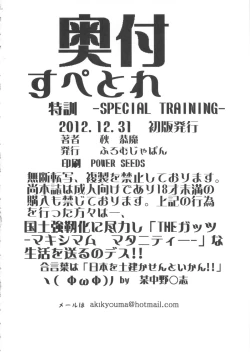 奥付
すぺとれ
特訓 -SPECIAL TRAINING-
2012.12.31 初版発行
著者 秋 恭魔
発行 ふろむじゃぱん
印刷 POWER SEEDS
無断転写、複製を禁止しております。
尚本誌は成人向けであり18才未満の
購入も禁じております。上記の行為
を行った方々は―、
国土強靭化に尽力し「THEガッツ
-マキシマム マタニティ―-」な
生活を送るのデス!!
合言葉は「日本を土建かせんといかん!!」
ヽ( ΦωΦ)ﾉ by 某中野○志
メールは akikyouma@hotmail.com